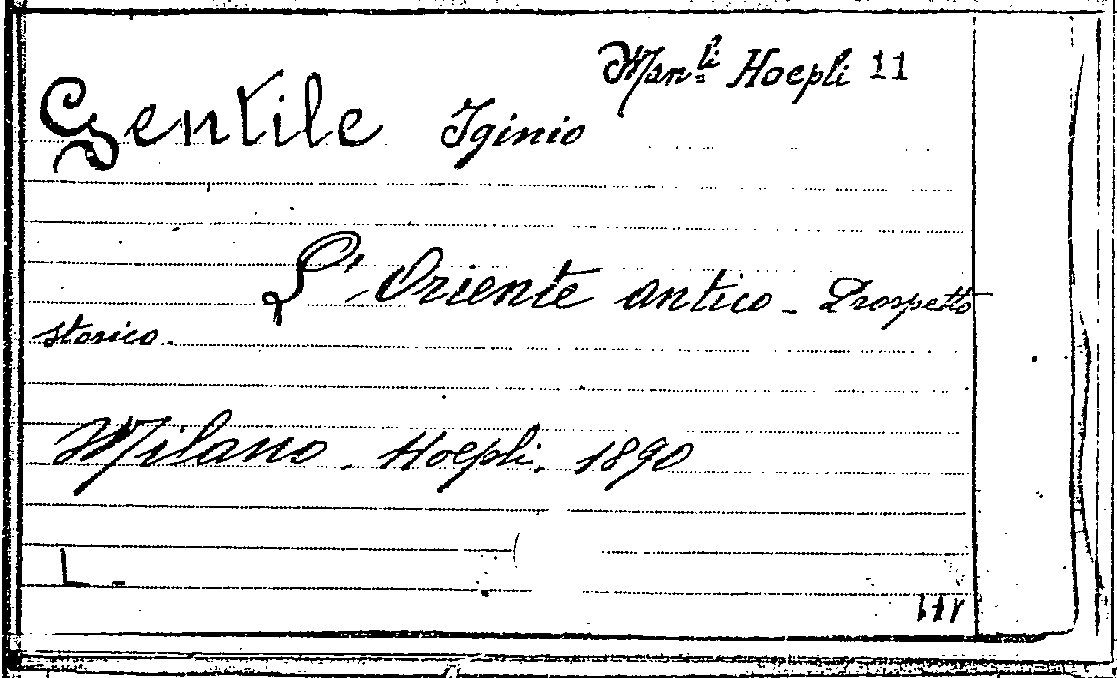 Man.li Hoepli 11
Gentile Iginio
L'Oriente antico - Prospetto
storico.
Milano. Hoepli. 1890
L -